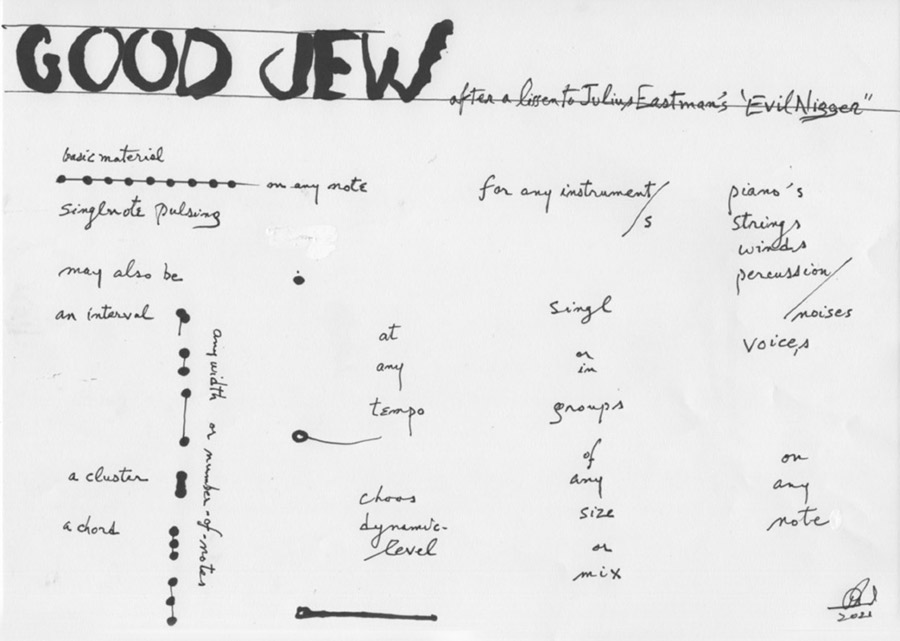 GOOD JEW
after a lissen to Julius Eastman's "Evil Nigger"
basic material
on any note
singlnote pulsing
may also be
an interval
any width or number-of-notes
a cluster
a chord
at
any
tempo
choos
dynamic-
level
for any instrument/
s
singl
or
in
groups
of
any
size
or
mix
piano's
strings
winds
percussion/
noises
voices
on
any
note
2021